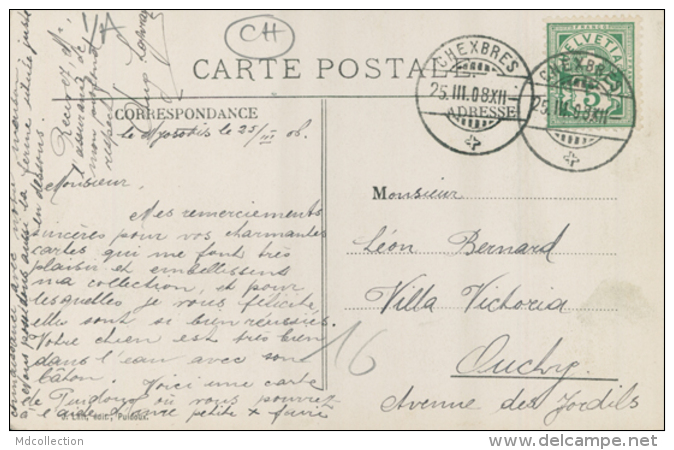 CH
CARTE POSTALE
HELVETIA
5
CHEXBRES
25.III.08.XII-
CHEXBRES
25.III.08.XII-
CORRESPONDANCE
ADRESSE
le 25/III 08.
Monsieur,
Mes remerciements
sincères pour vos charmantes
cartes qui me font très
plaisir et embellissent
ma collection, et pour
lesquelles je vous félicite,
elles sont si bien réussies.
Votre chien est très bien
dans l'eau avec son
bâton. Voici une carte
de Puidoux où vous pouvez
à l'aide d'une petite x faire
connaissance avec notre maison
Nous possédons aussi la ferme située juste
en dessous.
Recevez, M.
l'assurance de
mon profond
respect.
Monsieur
Léon Bernard
Villa Victoria
Ouchy.
Avenue des Jordils
16
édit., Puidoux.
Mdcollection
www.delcampe.net